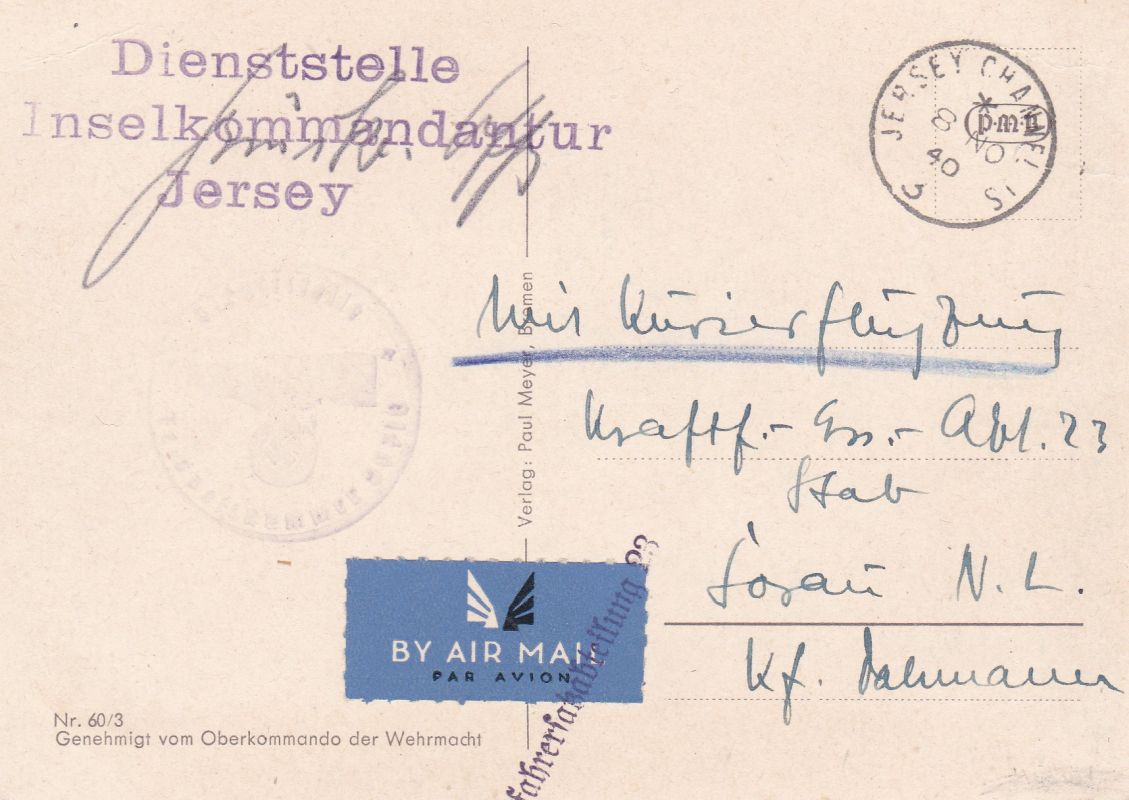 Dienststelle
Inselkommandantur
Jersey
JERSEY CHANNEL IS
8 NO
40
3
p·m·b
Mit Kurierflugzeug
Kraftf.-Ers.-Abt. 23
Stab
Sorau N. L.
Kf. Dahmann
Verlag: Paul Meyer, Bremen
BY AIR MAIL
PAR AVION
fahrersatzabteilung 23
Nr. 60/3
Genehmigt vom Oberkommando der Wehrmacht